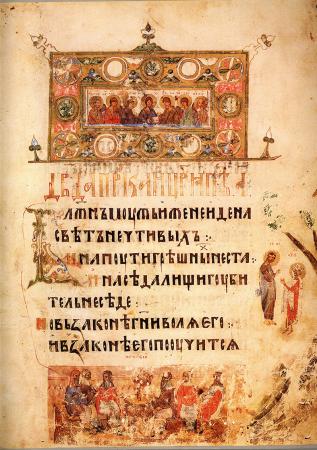 БЛЖНЪМОУЖЬИЖЕНЕИДЕНА
СВѢТЪНЕЧТИВЫХЪ:
ИНАПОУТИГРѢШНЫНЕСТА
ИНАСѢДАЛИЩИГОУБИ
ТЕЛЬНЕСѢДЕ
НОВЬЗАКОНѢГНИВОЛѦЕГО:
ИВЗАКОНѢЕГОПООУЧИТСѦ